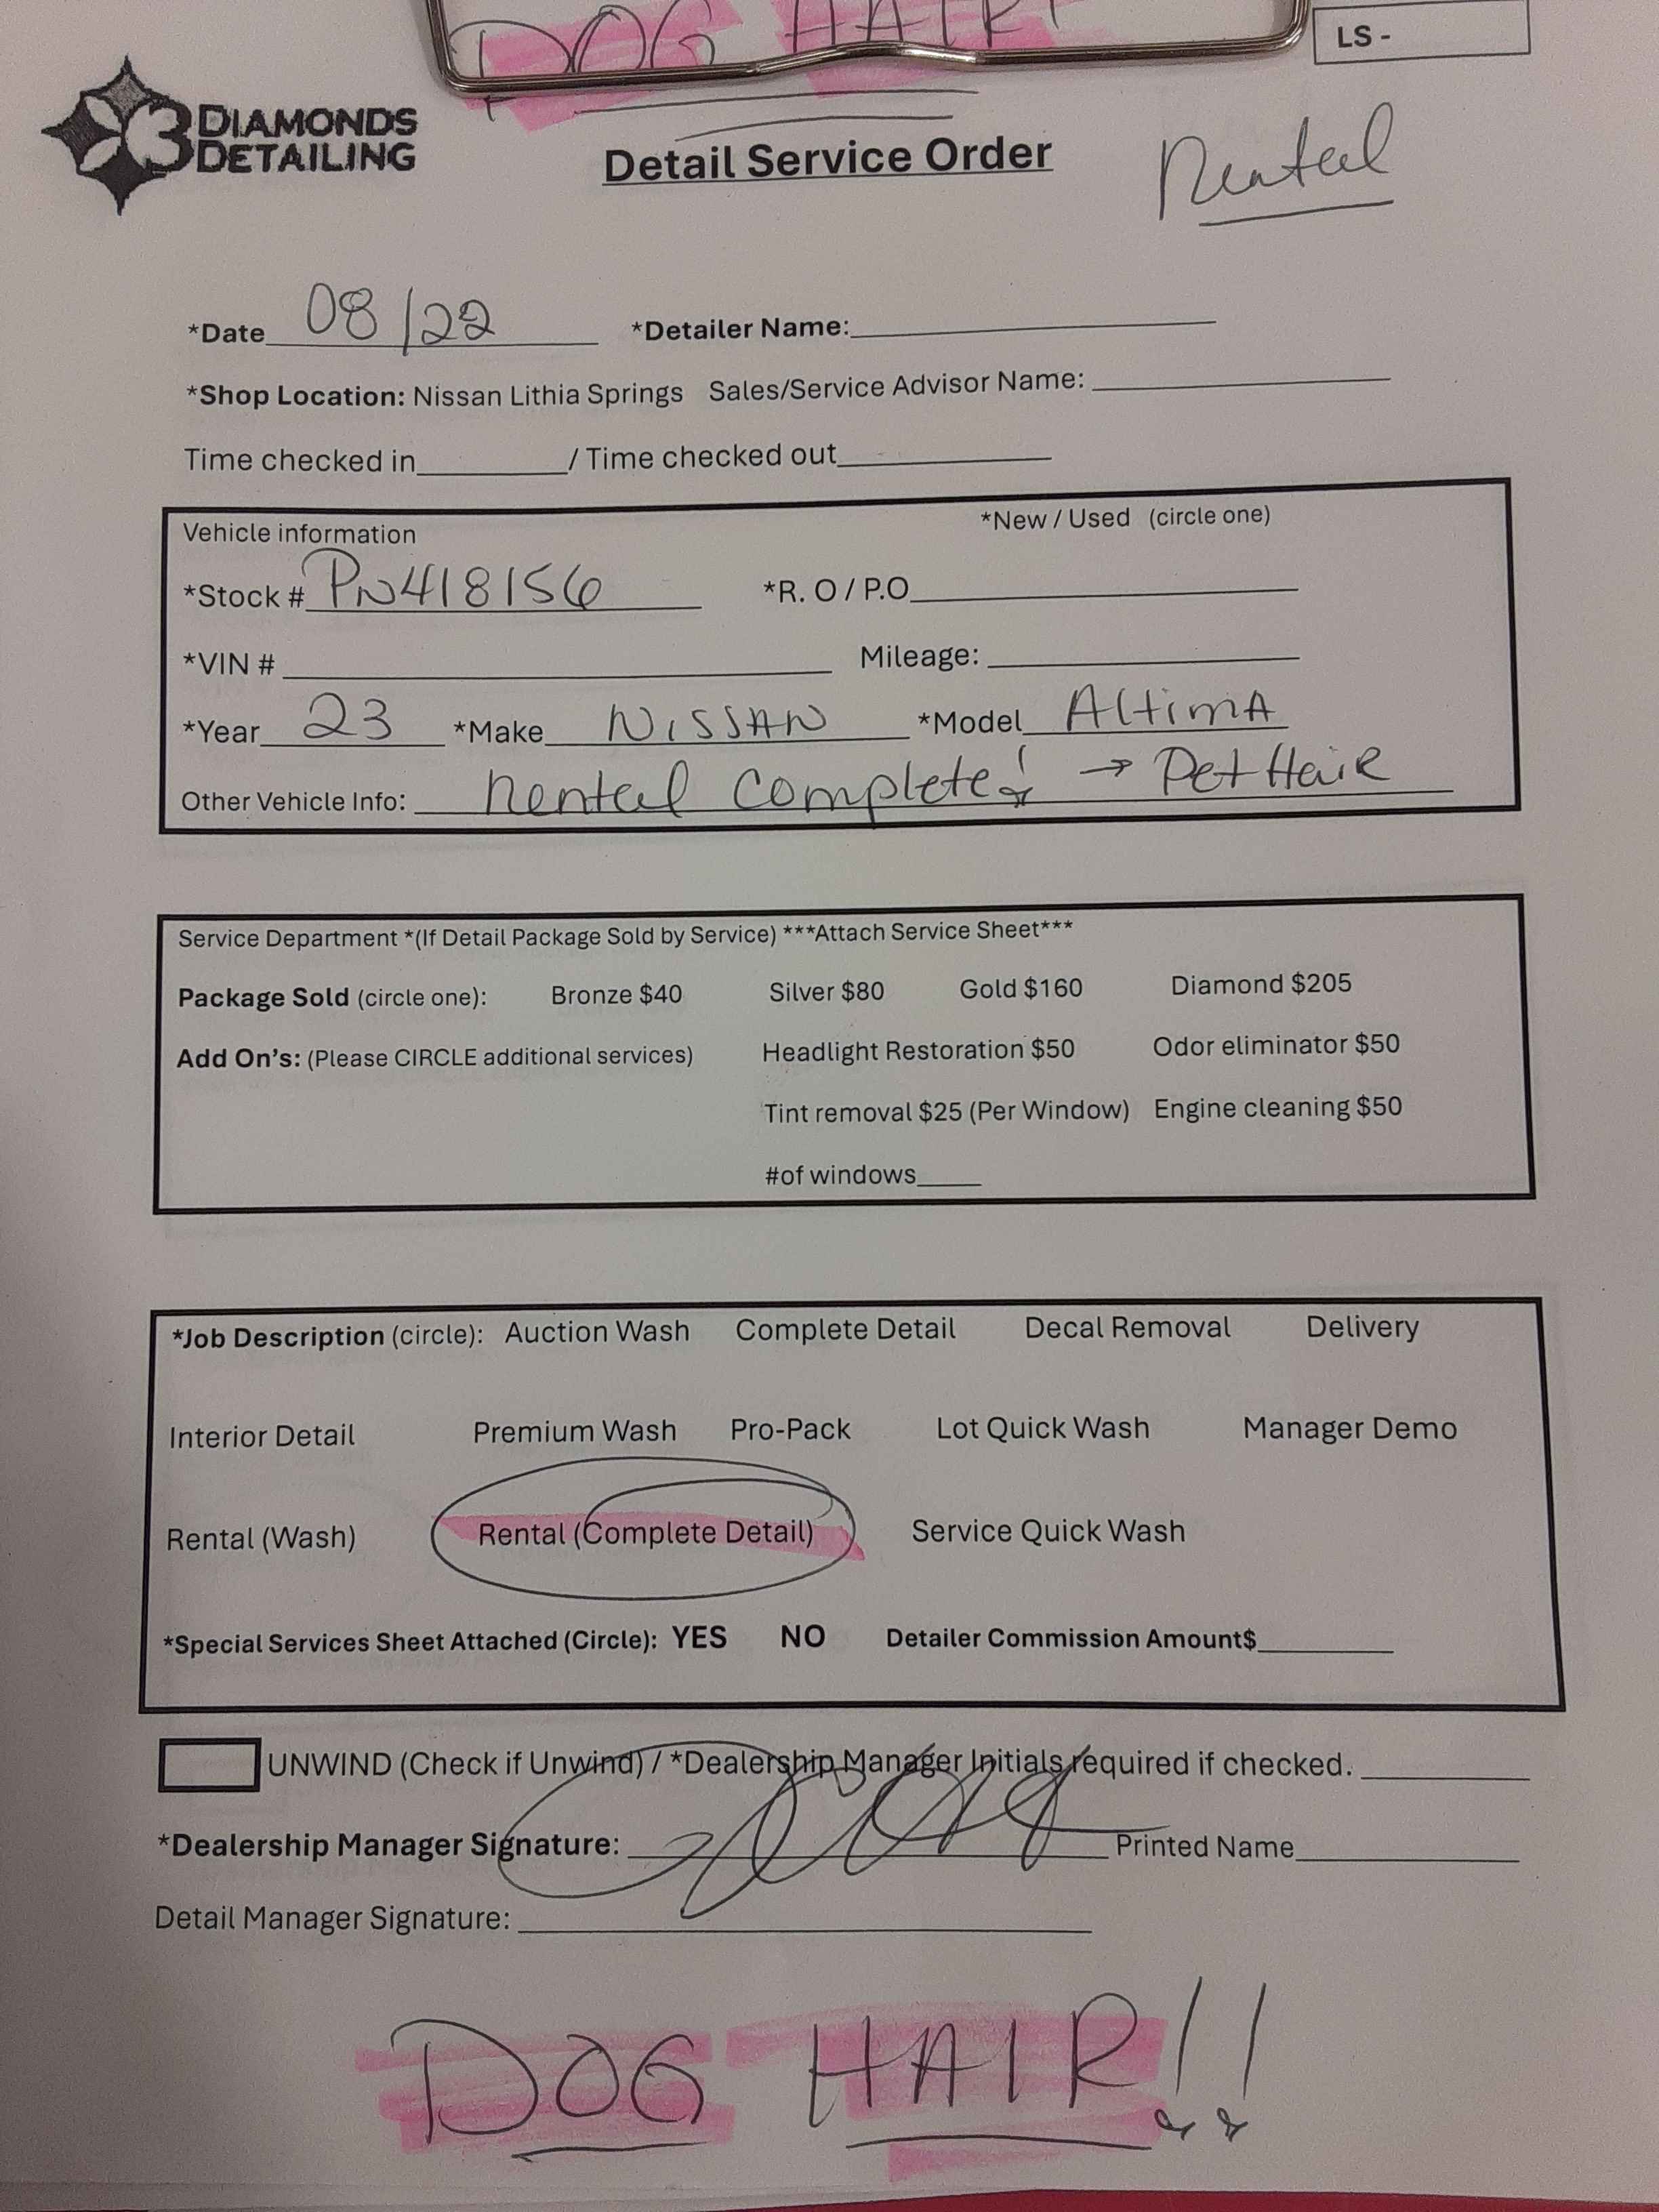 DOG HAIR!
LS -
3 DIAMONDS
DETAILING
Detail Service Order
Rental
*Date 08/22 *Detailer Name:
*Shop Location: Nissan Lithia Springs Sales/Service Advisor Name:
Time checked in / Time checked out
Vehicle information *New / Used (circle one)
*Stock # PN418156 *R. O / P.O
*VIN # Mileage:
*Year 23 *Make NISSAN *Model AltimA
Other Vehicle Info: Rental Complete! → Pet Hair
Service Department *(If Detail Package Sold by Service) ***Attach Service Sheet***
Package Sold (circle one): Bronze $40 Silver $80 Gold $160 Diamond $205
Add On's: (Please CIRCLE additional services) Headlight Restoration $50 Odor eliminator $50
Tint removal $25 (Per Window) Engine cleaning $50
#of windows
*Job Description (circle): Auction Wash Complete Detail Decal Removal Delivery
Interior Detail Premium Wash Pro-Pack Lot Quick Wash Manager Demo
Rental (Wash) Rental (Complete Detail) Service Quick Wash
*Special Services Sheet Attached (Circle): YES NO Detailer Commission Amount$
UNWIND (Check if Unwind) / *Dealership Manager Initials required if checked.
*Dealership Manager Signature: Printed Name
Detail Manager Signature:
DOG HAIR!!